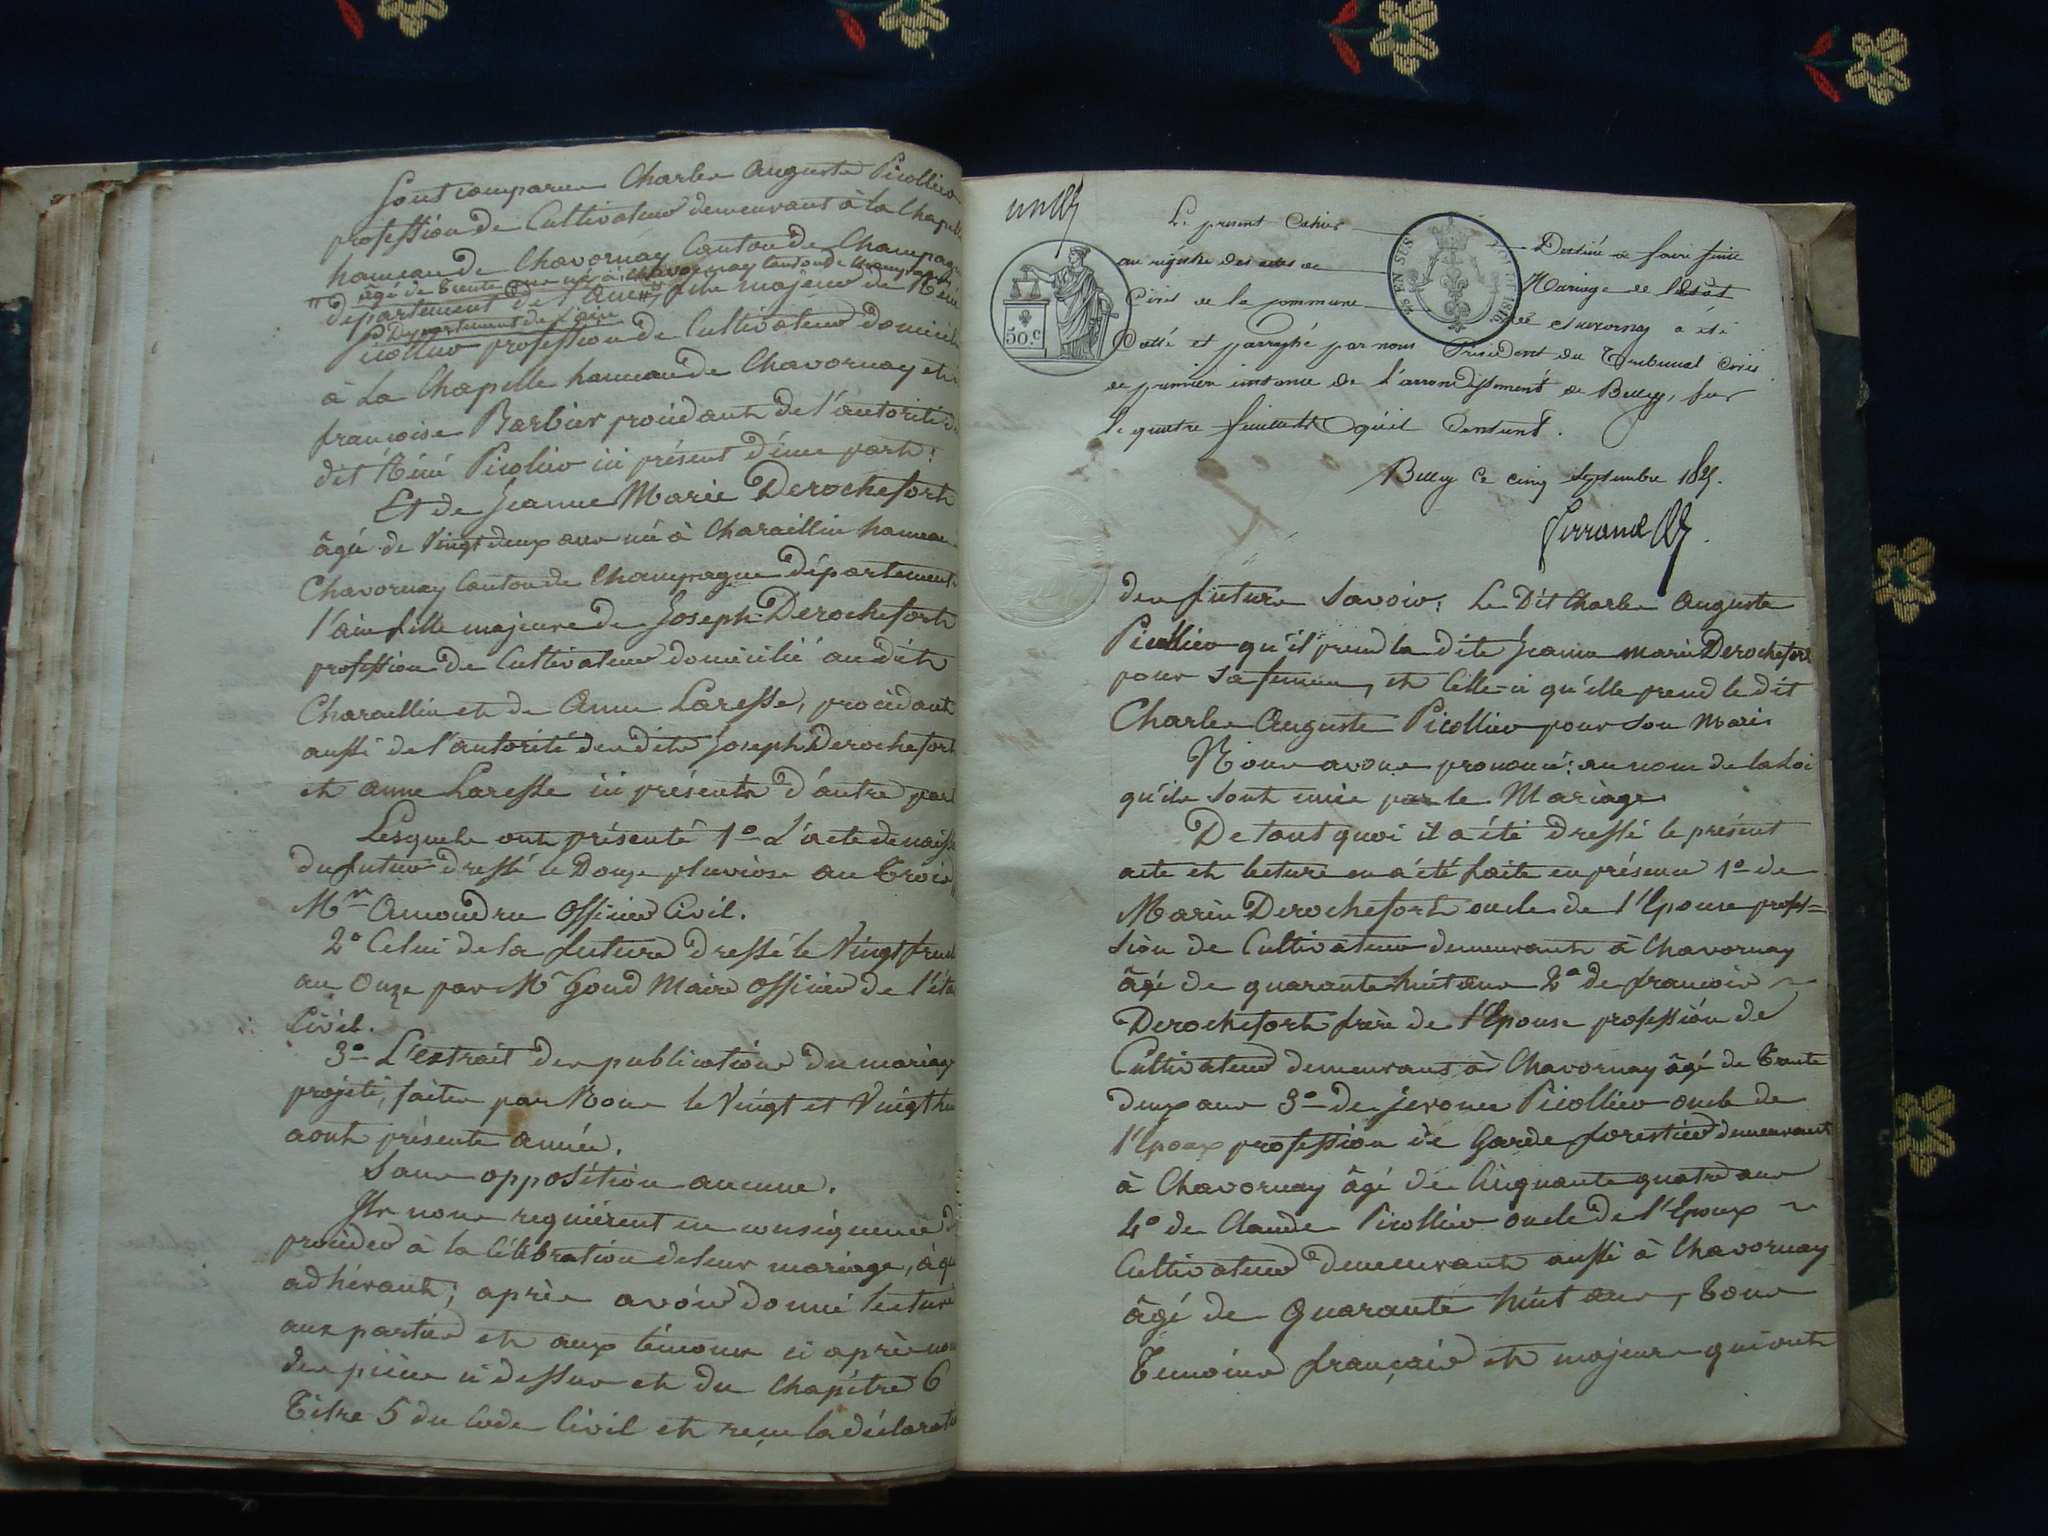 Sont comparus Charles Auguste Picollier
profession de Cultivateur demeurant à la Chapelle
hameau de Chavornay Canton de Champagne
âgé de trente ans né à Chavornay Canton de Champagne
département de l'Ain, fils majeur de Réné
Département de l'ain
Picollier profession de Cultivateur domicilié
à La Chapelle hameau de Chavornay et
françoise Barbier procédant de l'autorité du
dit Réné Picolier ici présent d'une part:
Et de Jeanne Marie Derochefort
âgée de Vingt deux ans née à Charaillin hameau
Chavornay Canton de Champagne département
l'ain fille majeure de Joseph Derochefort
profession de Cultivateur domicilié au dit
Charaillin et de Anne Laresse, procédant
aussi de l'autorité des dits Joseph Derochefort
et anne Laresse ici présents d'autre part
Lesquels ont présenté 1º L'acte de naiss
du futur dressé le Douze pluviose an trois
Mr Amoudru Officier Civil.
2º Celui de la future dressé le Vingt fruct
an Onze par Mr Goud Maire Officier de l'éta
Civil.
3º L'extrait des publications du mariage
projeté, faites par Nous le Vingt et Vingt hu
aout présente année.
Sans opposition aucune.
Ils nous requièrent en conséquence de
procéder à la Célébration de leur mariage, à q
adhérant; après avoir donné lecture
aux parties et aux témoins ci après nom
des pièces ci dessus et du Chapitre 6
Titre 5 du Code Civil et reçu la déclarati
un
Le présent Cahier Destiné à faire suite
au régistre des actes de Mariage de l'état
Civil de la commune de Chavornay a été
Cotté et parraphé par nous Président du Tribunal Civil
de première instance de l'arrondissement de Belley, sur
le quatre feuillets qu'il Contient.
Belley Ce cinq Septembre 182.
50.C
EN SUS
DE 1816
Ferrand
des futurs Savoir: Le Dit Charles Auguste
Picollier qu'il prend la dite Jeanne marie Derochefort
pour Sa femme, et Celle-ci qu'elle prend le dit
Charles Auguste Picollier pour son Mari.
Nous avons prononcé: au nom de la Loi
qu'ils sont unis par le Mariage.
De tout quoi il a été dressé le présent
acte et lecture en a été faite en présence 1º de
Marin Derochefort oncle de l'Epouse profes=
sion de Cultivateur demeurant à Chavornay
âgé de quarante huit ans 2º de françois
Derochefort frère de l'Epouse profession de
Cultivateur demeurant à Chavornay âgé de Trente
deux ans 3º de Jerome Picollier oncle de
l'Epoux profession de Garde forestier demeurant
à Chavornay âgé de Cinquante quatre ans
4º de Claude Picollier oncle de l'Epoux
Cultivateur demeurant aussi à Chavornay
âgé de Quarante huit ans, Tous
Témoins français et majeurs qui ont